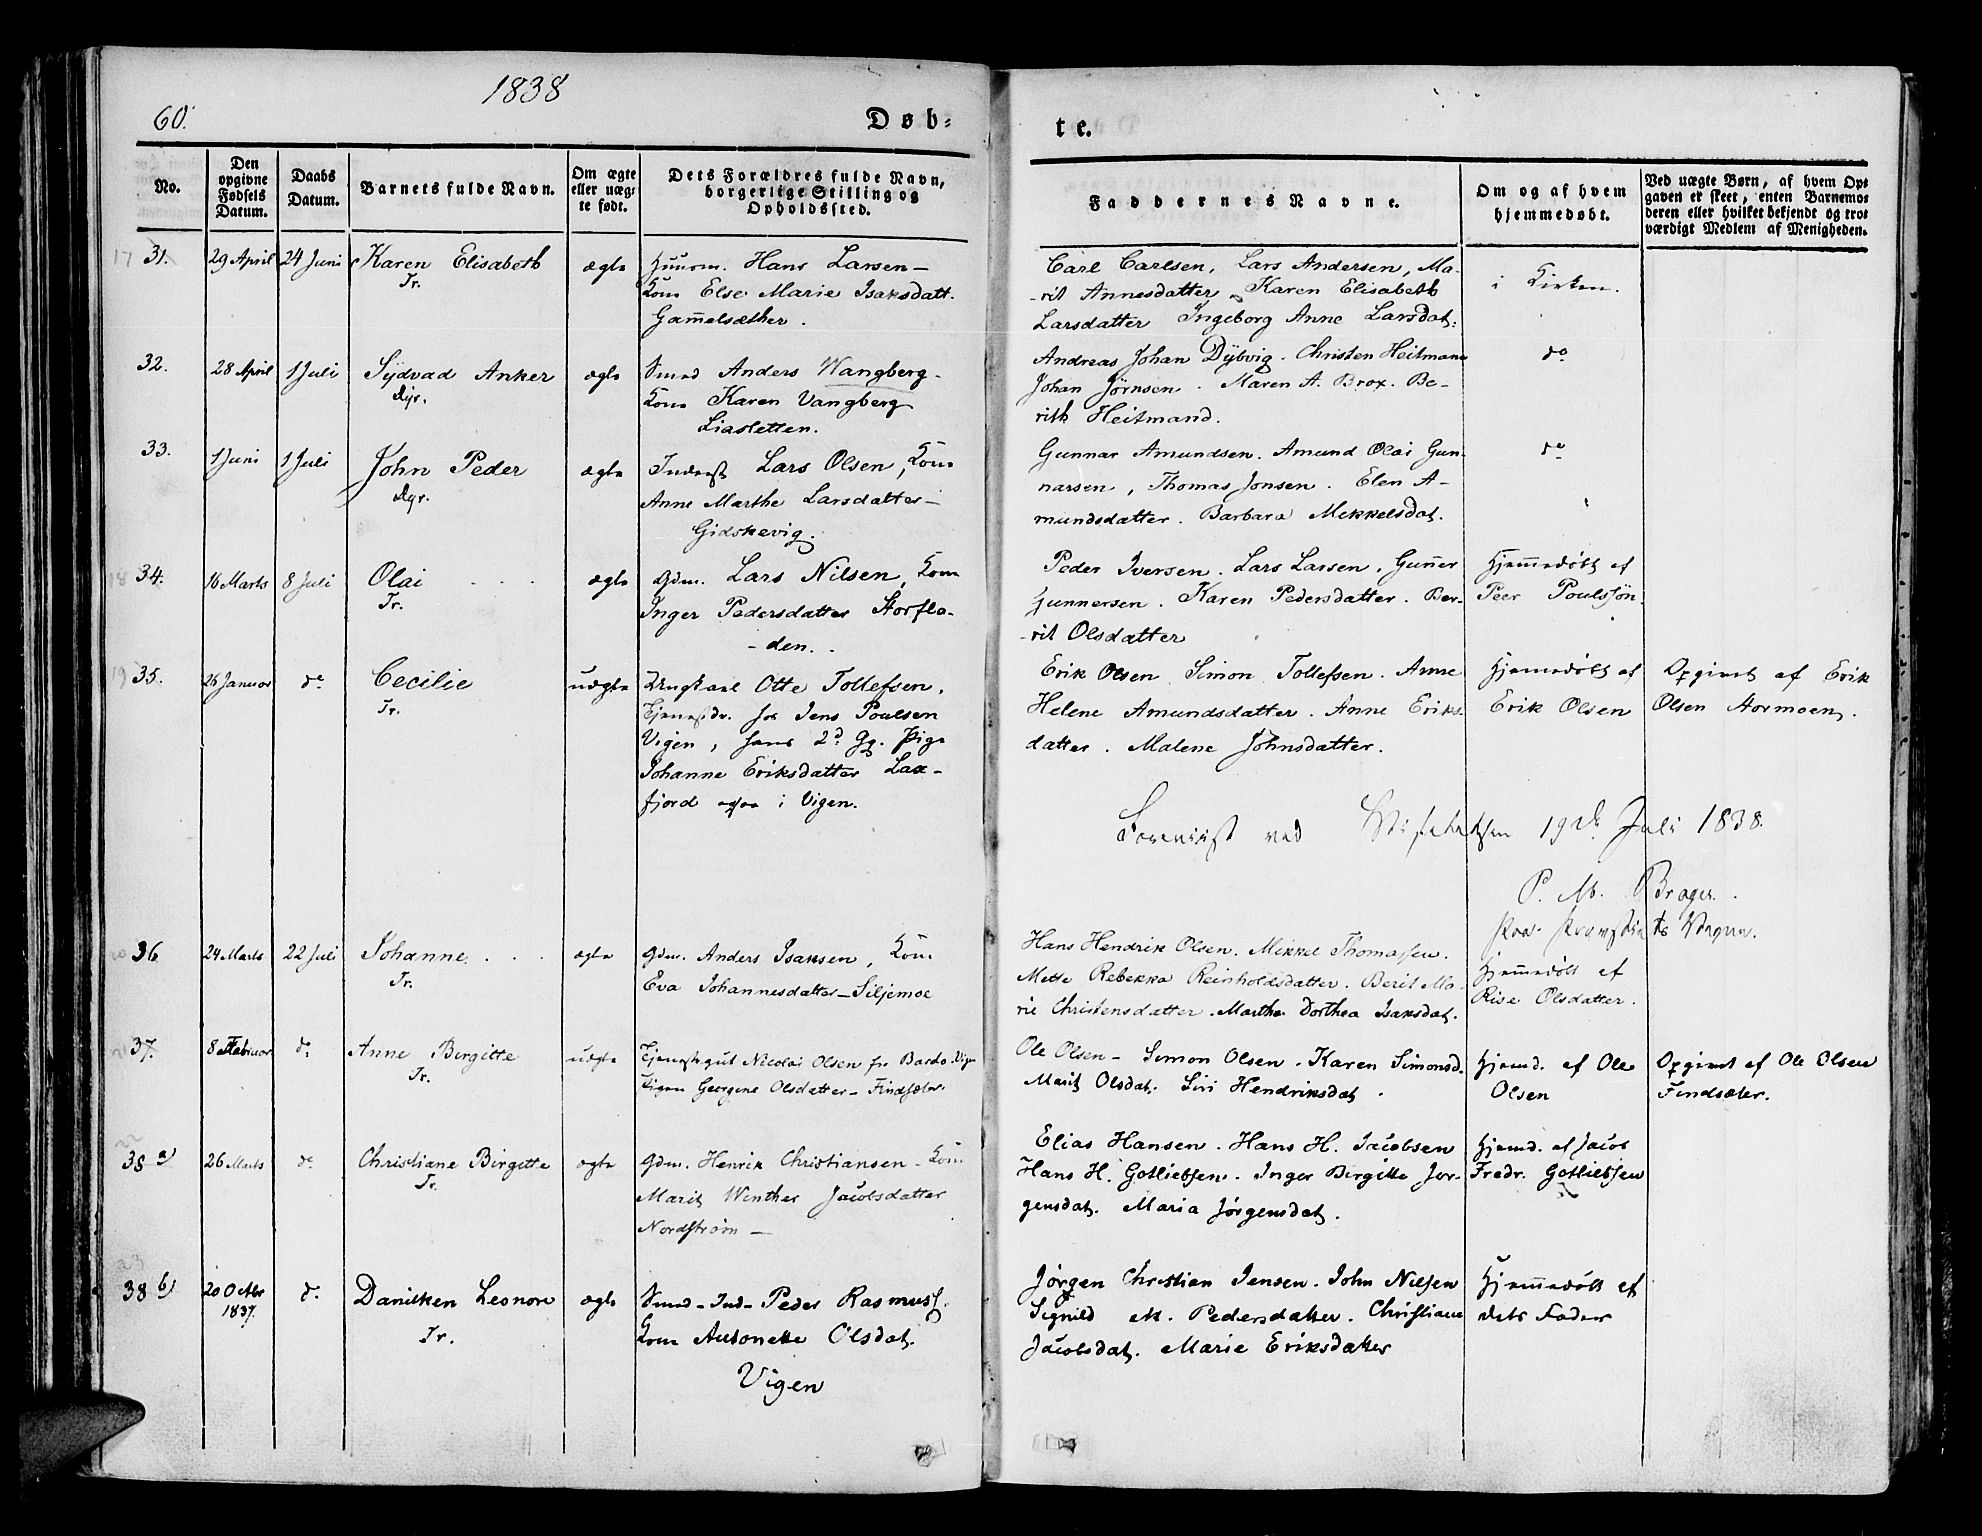 1838
60.
Døb-
te.
No.
Den opgivne Fødsels Datum.
Daabs Datum.
Barnets fulde Navn.
Om ægte eller uægte født.
Dets Forældres fulde Navn, borgerlige Stilling og Opholdssted.
Faddernes Navne.
Om og af hvem hjemmedøbt.
Ved uægte Børn, af hvem Opgaven er skeet, enten Barnemoderen eller hvilket bekjendt og troværdigt Medlem af Menigheden.
17 31. 29 April 24 Juni Karen Elisabeth ægte Huusm. Hans Larsen –
Tr.
Kone Else Marie Isaksdatt.
Gammelsæther.
Carl Carlsen, Lars Andersen, Ma-
-rit Annesdatter, Karen Elisabeth
Larsdatter Ingeborg Anne Larsdat:
i Kirken.
32. 28 April 1 Juli Sydvad Anker ægte Smed Anders Wangberg –
Dyr.
Kone Karen Vangberg
Liasletten.
Andreas Johan Dÿbvig. Christen Heitmann
Johan Jørnsen. Maren A. Brox. Be-
rith Heitmand.
do
33. 1 Juni 1 Juli John Peder ægte Inderst Lars Olsen, Kone
Dyr.
Anne Marthe Larsdatter –
Gidskevig.
Gunnar Amundsen. Amund Olai Gun-
narsen, Thomas Jonsen. Elen A-
mundsdatter. Barbara Mekkelsdat.
do
18 34. 16 Marts 8 Juli Olai ægte Gdm. Lars Nilsen, Kone
Tr.
Inger Pedersdatter Storflo-
-den.
Peder Iversen. Lars Larsen. Gunner
Gunnersen. Karen Pedersdatter. Ber-
-rit Olsdatter
Hjemmedøbt af
Peer Poulssøn
19 35. 26 Januar do Cecilie uægte Ungkarl Otte Tollefsen,
Tr.
Tjenestdr. hos Jens Poulsen
Vigen, hans 2d Gg. Pige
Johanne Eriksdatter Lax-
fjord ogsaa i Vigen.
Erik Olsen Simon Tollefsen. Anne
Helene Amundsdatter. Anne Eriks-
datter. Malene Johnsdatter.
Hjemmedøbt af
Erik Olsen
Opgivet af Erik
Olsen Stormoen.
Foreviist ved Visitatsen 19de Juli 1838.
P. M. Brager.
paa Provstiets Vegne.
20 36. 24 Marts 22 Juli Johanne ægte Gdm. Anders Isaksen, Kone
Tr.
Eva Johannesdatter – Siljemoe
Hans Hendrik Olsen. Mikkel Thomassen.
Mette Rebekka Reinholdsdatter. Berit Ma-
rie Christensdatter. Marthe Dorthea Isaksdat.
Hjemmedøbt af
Rise Olsdatter.
21 37. 8 Februar do Anne Birgitte uægte Tjenestegut Nicolai Olsen fra Bardo. Vigen
Tr.
Pigen Georgine Olsdatter – Findsæter
Ole Olsen – Simon Olsen. Karen Simonsd.
Marit Olsdat. Siri Hendriksdat.
Hjemd. af Ole
Olsen
Opgivet af Ole Olsen
Findsæter.
22
38 a) 26 Marts do Christiane Birgitte ægte Gdm. Henrik Christiansen – Kone
Tr.
Marit Winther Jacobsdatter
Nordstrøm –
Elias Hansen. Hans H. Jacobsen
Hans H. Gotliebsen. Inger Birgitte Jør-
gensdat. Maria Jørgensdat.
Hjemd. af Jacob
Fredr. Gotliebsen
23
38 b) 20 Octbr 1837. do Daniken Leonore ægte Smed – Ind – Peder Rasmuss.
Tr.
Kone Antonette Olsdat.
Vigen
Jørgen Christian Jensen. John Nilsen
Signild M. Pedersdatter. Christiane
Jacobsdat. Marie Eriksdatter
Hjemmedøbt af
dets Fader